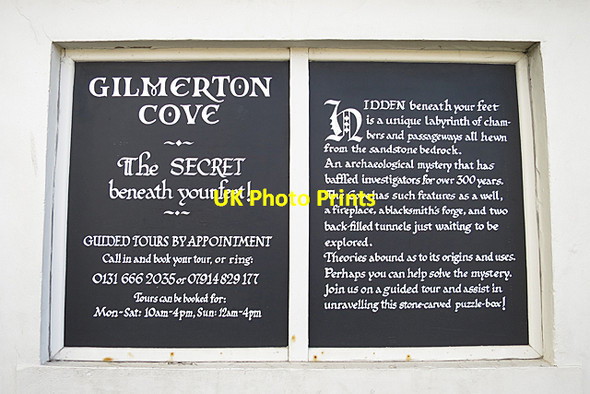 GILMERTON
COVE
The SECRET
beneath your feet!
GUIDED TOURS BY APPOINTMENT
Call in and book your tour, or ring:
0131 666 2035 or 07914 829 177
Tours can be booked for:
Mon-Sat: 10am-4pm, Sun: 12am-4pm
HIDDEN beneath your feet
is a unique labyrinth of cham-
bers and passageways all hewn
from the sandstone bedrock.
An archaeological mystery that has
baffled investigators for over 300 years.
The Cove has such features as a well,
a fireplace, a blacksmith's forge, and two
back-filled tunnels just waiting to be
explored.
Theories abound as to its origins and uses.
Perhaps you can help solve the mystery.
Join us on a guided tour and assist in
unravelling this stone-carved puzzle-box!
UK Photo Prints